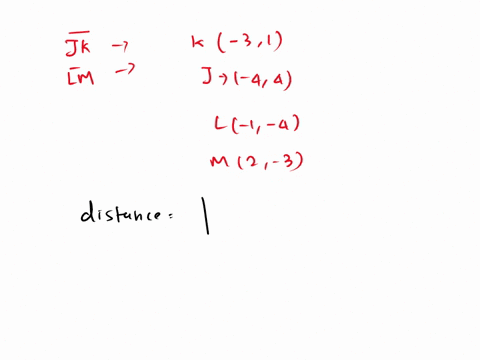 JK → K (-3,1)
LM → J→(-4,4)
L(-1,-4)
M (2,-3)
distance =